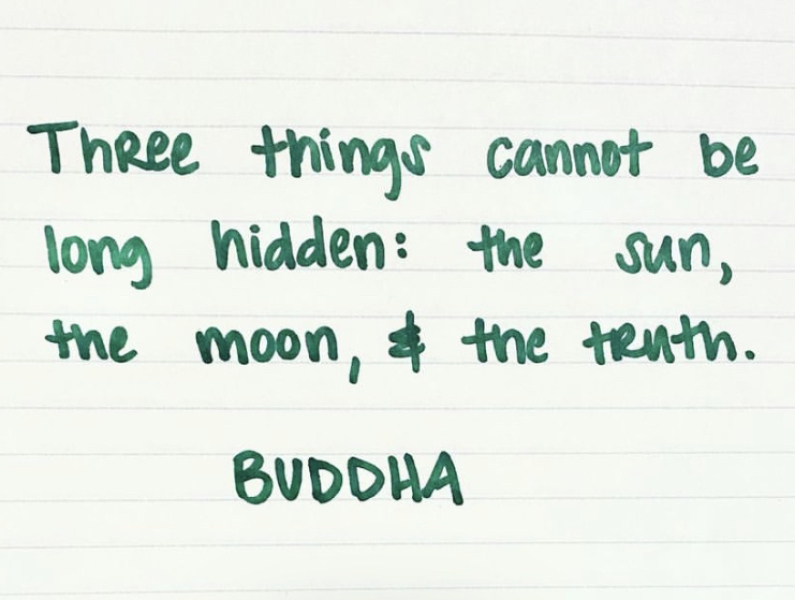 Three things cannot be
long hidden: the sun,
the moon, & the truth.
BUDDHA